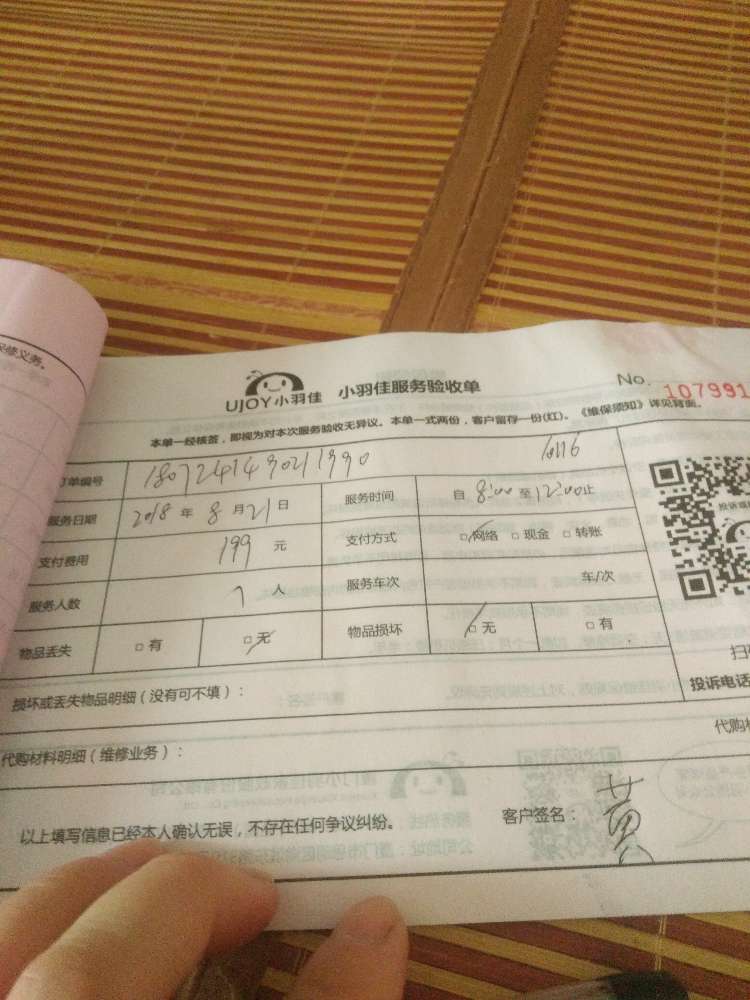 保修义务。
UJOY小羽佳 小羽佳服务验收单 No. 107991
本单一经核签，即视为对本次服务验收无异议。本单一式两份，客户留存一份(红)。《维保须知》详见背面。
订单编号 18072414930211990
服务日期 2018 年 8 月 21 日 服务时间 自 8:00 至 12:00 止
支付费用 199 元 支付方式 □网络 □现金 □转账
服务人数 1 人 服务车次 车/次
物品丢失 □有 □无 物品损坏 □无 □有
扫
投诉电话
损坏或丢失物品明细（没有可不填）：
代购材料明细（维修业务）： 代购
以上填写信息已经本人确认无误，不存在任何争议纠纷。 客户签名： 黄